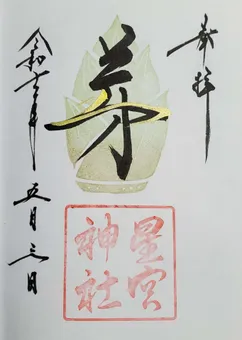 奉拝
芽
星宮
神社
令和六年
五月三日